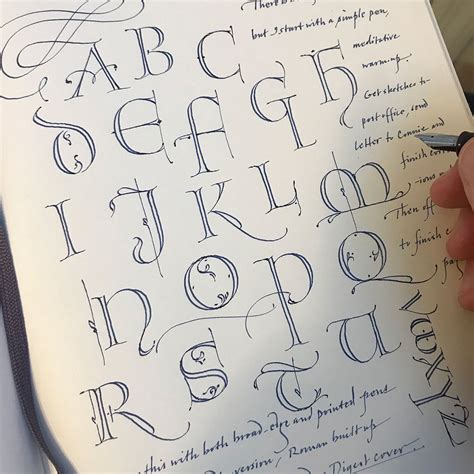 There
but I start with a simple pen,
meditative
warm-up.
Get sketches to
post office, send
letter to Connie and
finish corr
-ions
Then off
to finish
A B C
D E F G H
I J K L M
N O P Q
R S T U
V W X Y Z
this with both broad-edge and pointed pens
version, Roman built up
Digest cover.